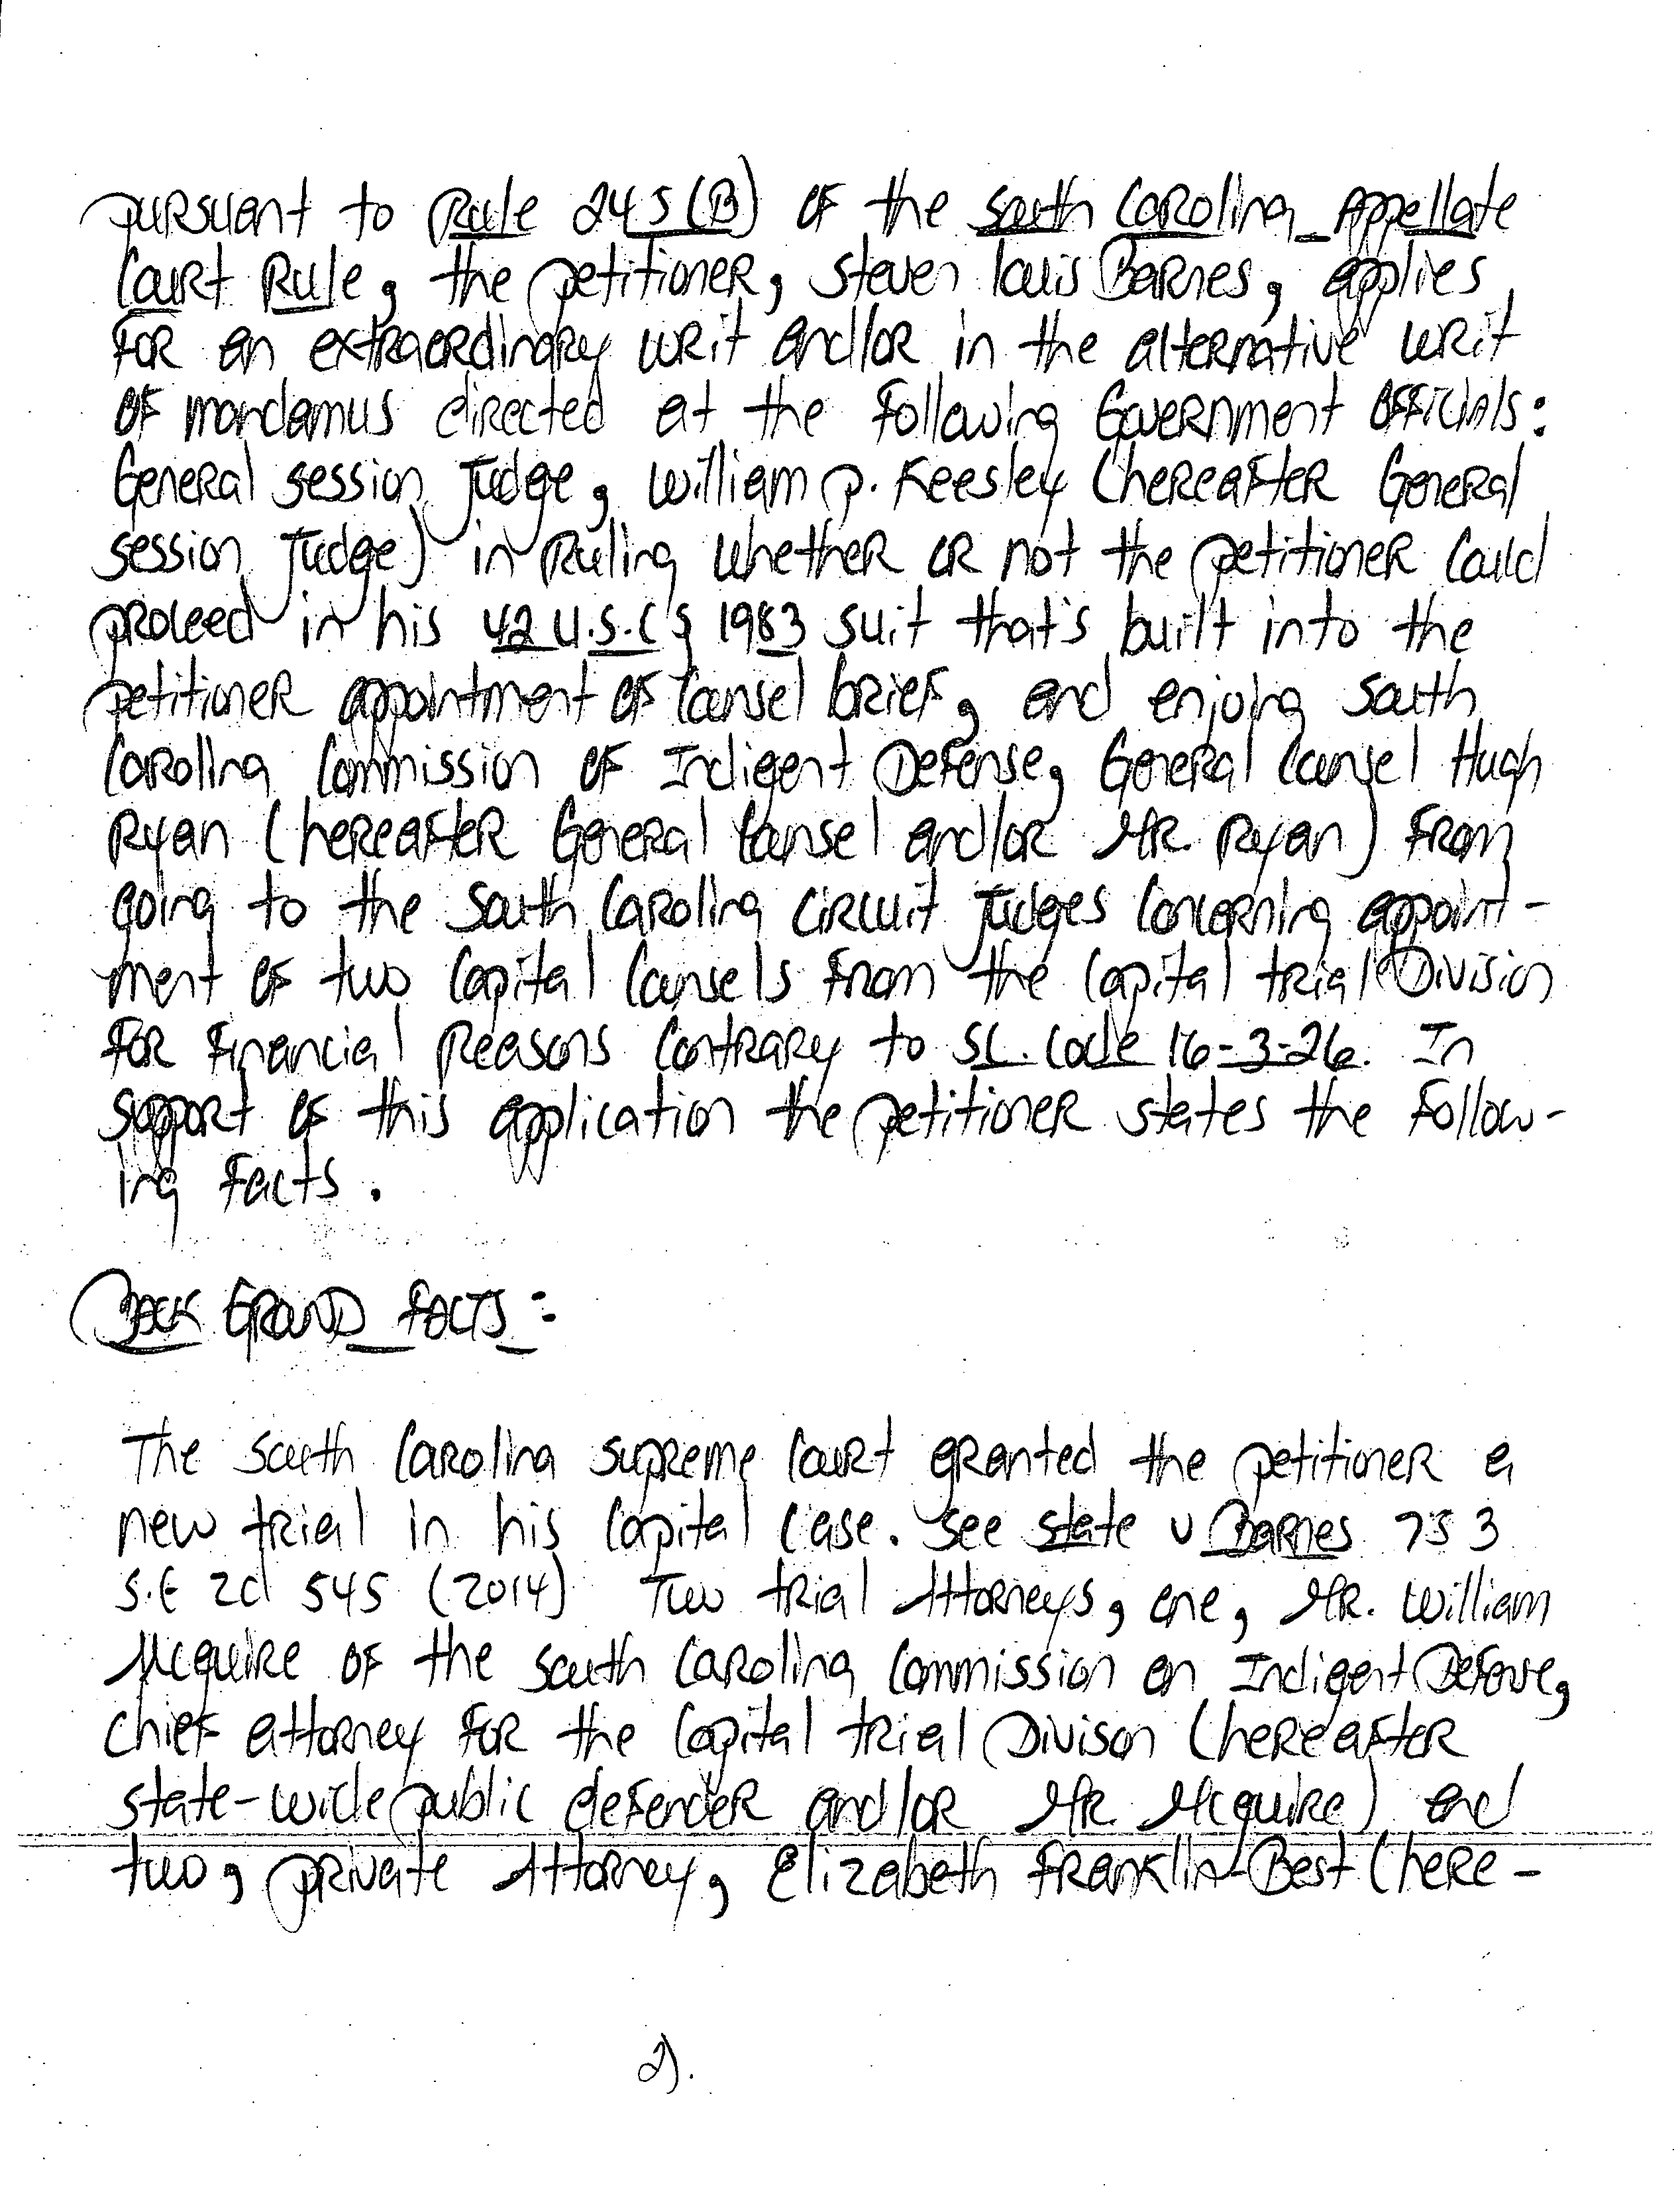 pursuant to Rule 245(B) of the South Carolina Appellate
Court Rule, the petitioner, Steven Louis Barnes, applies
for an extraordinary writ and/or in the alternative writ
of mandamus directed at the following Government Officials:
General session Judge, William P. Keesley (hereafter General
session Judge) in Ruling whether or not the petitioner could
proceed in his 42 U.S.C § 1983 suit that's built into the
petitioner appointment of counsel brief, and enjoing South
Carolina Commission of Indigent Defense, General Counsel Hugh
Ryan (hereafter General Counsel and/or Mr. Ryan) from
going to the South Carolina circuit Judges concerning appoint-
ment of two capital counsels from the capital trial Division
for financial Reasons contrary to SC. Code 16-3-26. In
support of this application the petitioner states the follow-
ing facts.
Back Ground Facts:
The South Carolina Supreme Court granted the petitioner a
new trial in his capital case. See State v Barnes 753
S.E 2d 545 (2014) Two trial Attorneys, one, Mr. William
Mcguire of the South Carolina Commission on Indigent Defense,
chief attorney for the capital trial Divison (hereafter
state-wide public defender and/or Mr. Mcguire) and
two, private Attorney, Elizabeth Franklin-Best (here-
2).